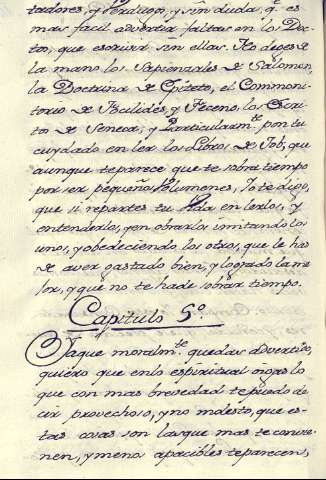 tadores, y Verdugos, y sin duda, q.e es
mas facil advertir faltas en los Doc-
tos, que escrivir sin ellas. No dexes de
la mano los Sapienzales de Salomon,
la Doctrina de Epiteto, el Commoni-
torio de Focilides, y Teceno, los Escri-
tos de Seneca, y Particularm.te pon tu
cuydado en leer los Libros de Job, que
aunque te parece que te sobra tiempo
por ser pequeños Volumenes, Yo te digo,
que si repartes tu Vida en leerlos, y
entenderlos, y en obrarlos imitando los
unos, y obedeciendo los otros, que le has
de aver gastado bien, y logrado la me-
lor, y que no te ha de sobrar tiempo.
Capitulo 5.o
Ya que moralm.te quedas advertido,
quiero que en lo espiritual oygas lo
que con mas brevedad te puedo de-
cir provechoso, y no molesto, que es-
tas cosas son las que mas te convie-
nen, y menos apacibles te parecen,